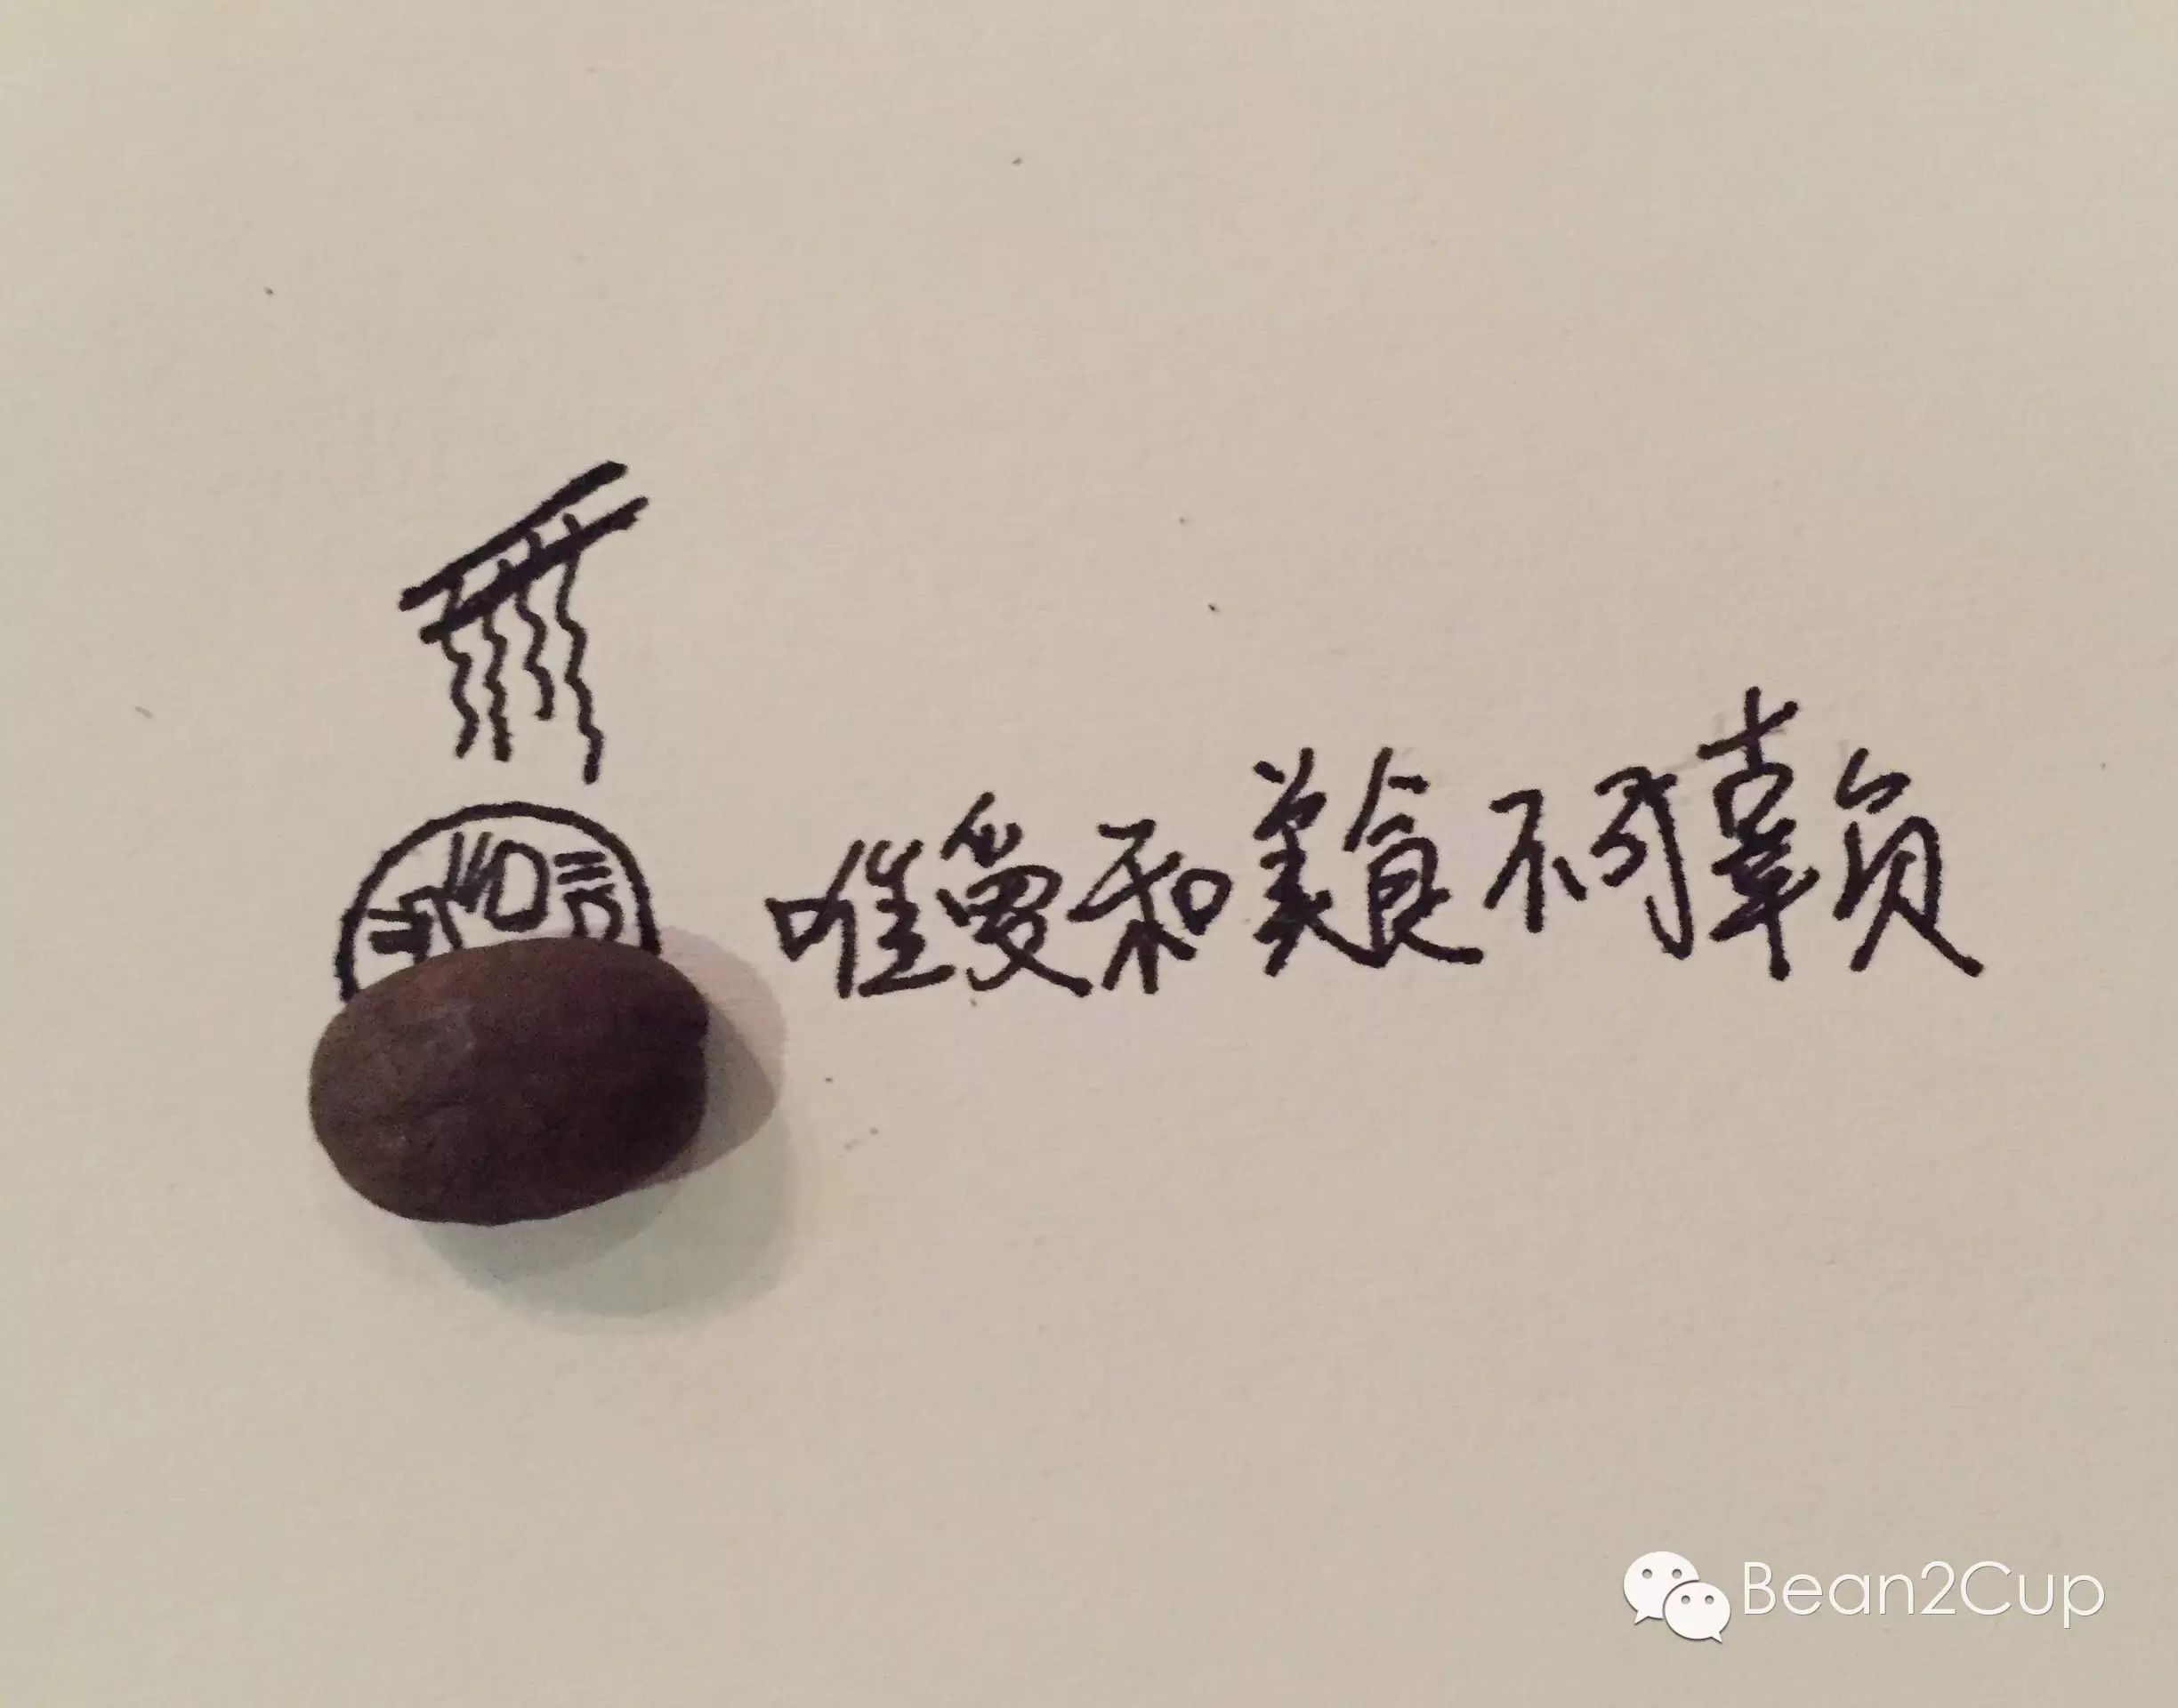 唯爱和美食不可辜负
Bean2Cup